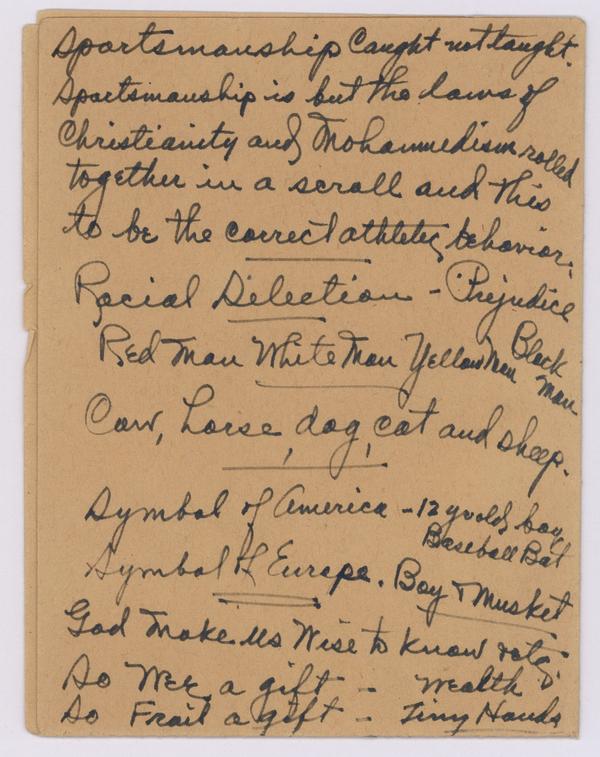 Sportsmanship Caught not taught.
Sportsmanship is but the laws of
Christianity and Mohammedism rolled
together in a scroll and this
to be the correct athletic behavior.
Racial Selection - Prejudice
Red Man White Man Yellow Man Black Man
Cow, horse, dog, cat and sheep.
Symbol of America - 12 yr old boy,
Baseball Bat
Symbol of Europe. Boy & Musket
God Make us Wise to know
So Wee a gift - Wealth
So Frail a gift - Tiny Hands